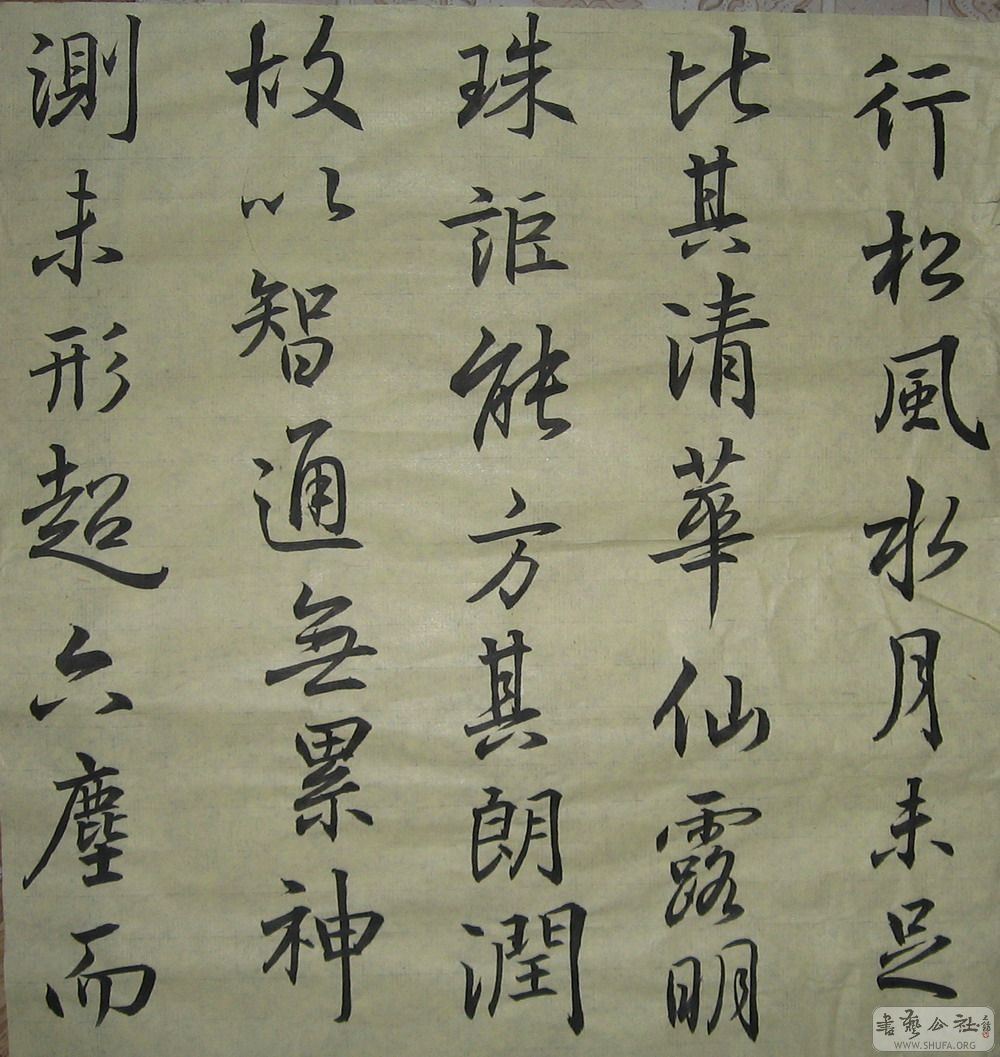 行松風水月未足
比其清華仙露明
珠詎能方其朗潤
故以智通無累神
測未形超六塵而
書藝公社
WWW.SHUFA.ORG